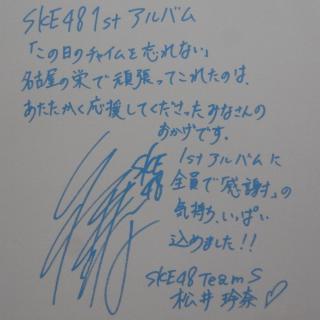 SKE48 1st アルバム
「この日のチャイムを忘れない」
名古屋の栄で頑張ってこれたのは、
あたたかく応援してくださったみなさんの
おかげです。
SKE
48
1st アルバムに
全員で「感謝」の
気持ち、いっぱい
込めました!!
SKE48 Team S
松井玲奈♡